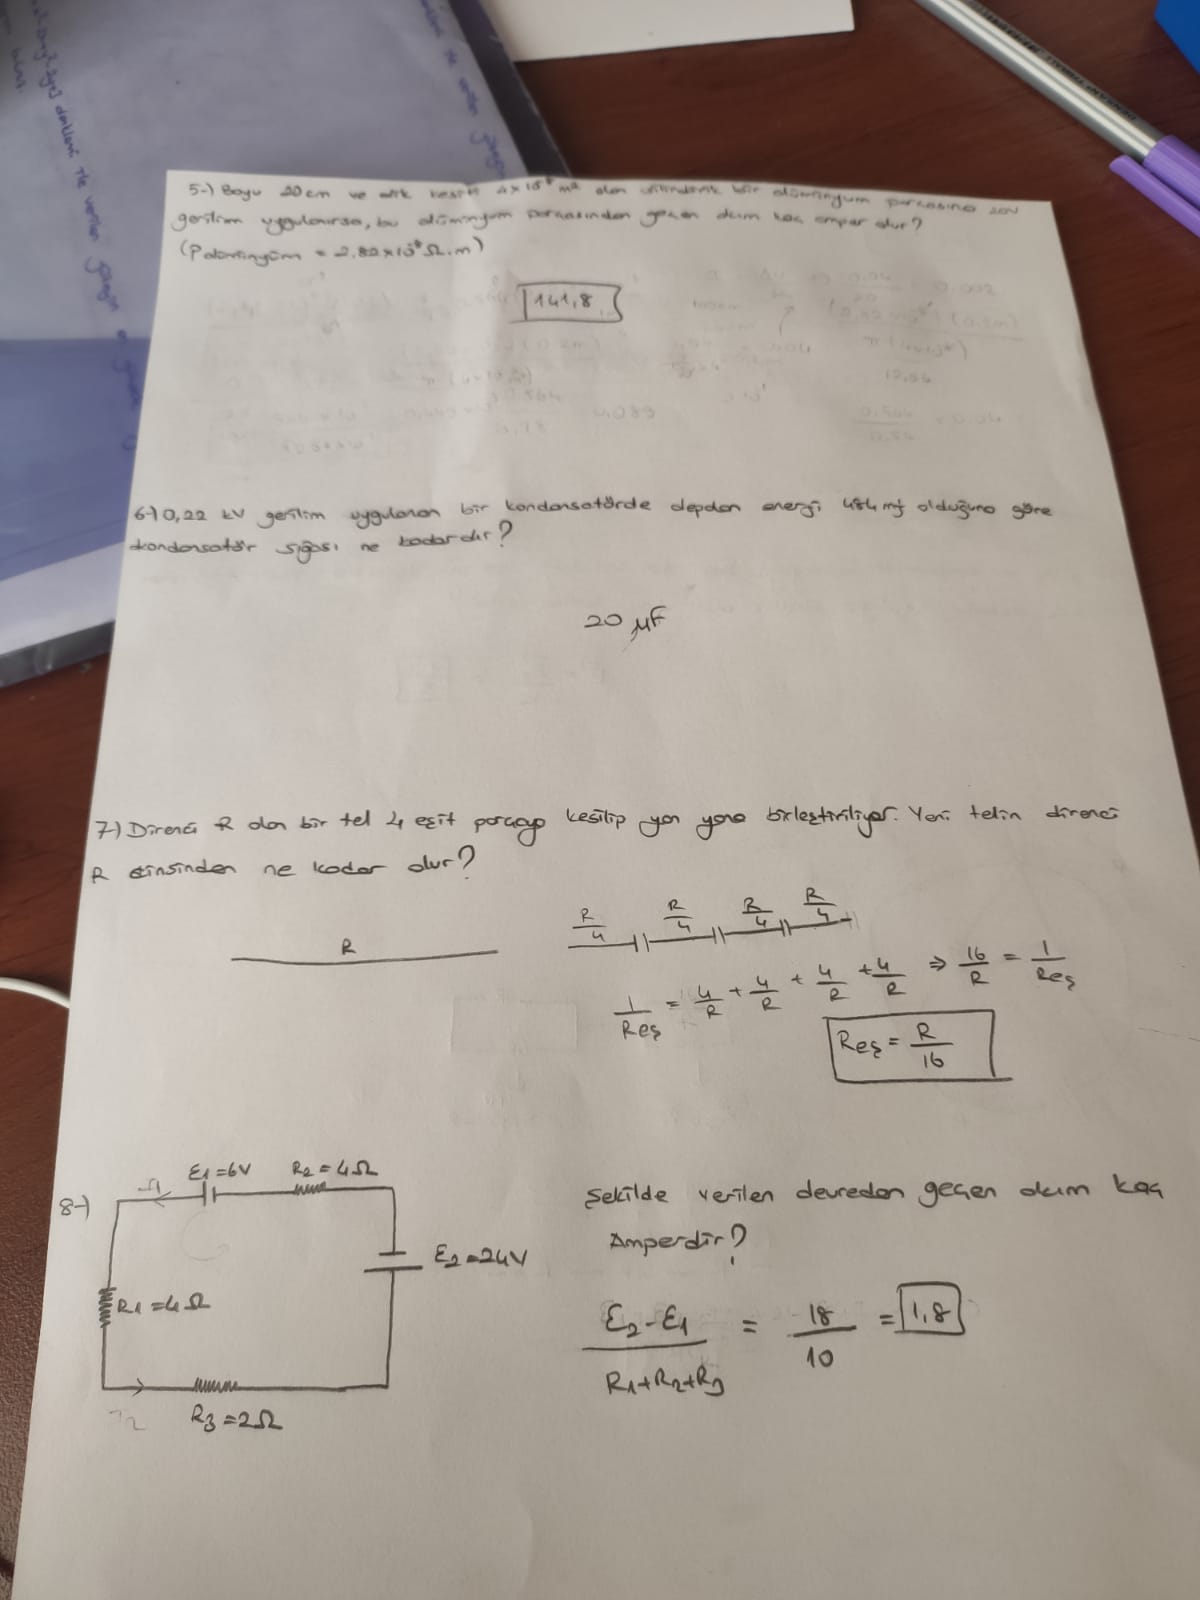 5-) Boyu 20cm ve dik kesiti 4x10 m² olan silindirik bir alüminyum parçasına 20V
gerilim uygulanırsa, bu alüminyum parçasından geçen akım kaç amper olur?
(Palüminyüm = 2.82x10⁻⁸ Ω.m)
141,8
6-) 0,22 kV gerilim uygulanan bir kondansatörde depolan enerji 484 mj olduğuna göre
kondansatör sığası ne kadardır?
20 μF
7-) Direnci R olan bir tel 4 eşit parçaya kesilip yan yana birleştiriliyor. Yeni telin direnci
R cinsinden ne kadar olur?
R
R/4 R/4 R/4 R/4
1/Reş = 4/R + 4/R + 4/R + 4/R ⇒ 16/R = 1/Reş
Reş = R/16
8-)
E1=6V R2=4Ω
E2=24V
R1=4Ω
R3=2Ω
Şekilde verilen devreden geçen akım kaç
Amperdir?
E2-E1 / R1+R2+R3 = 18/10 = 1,8